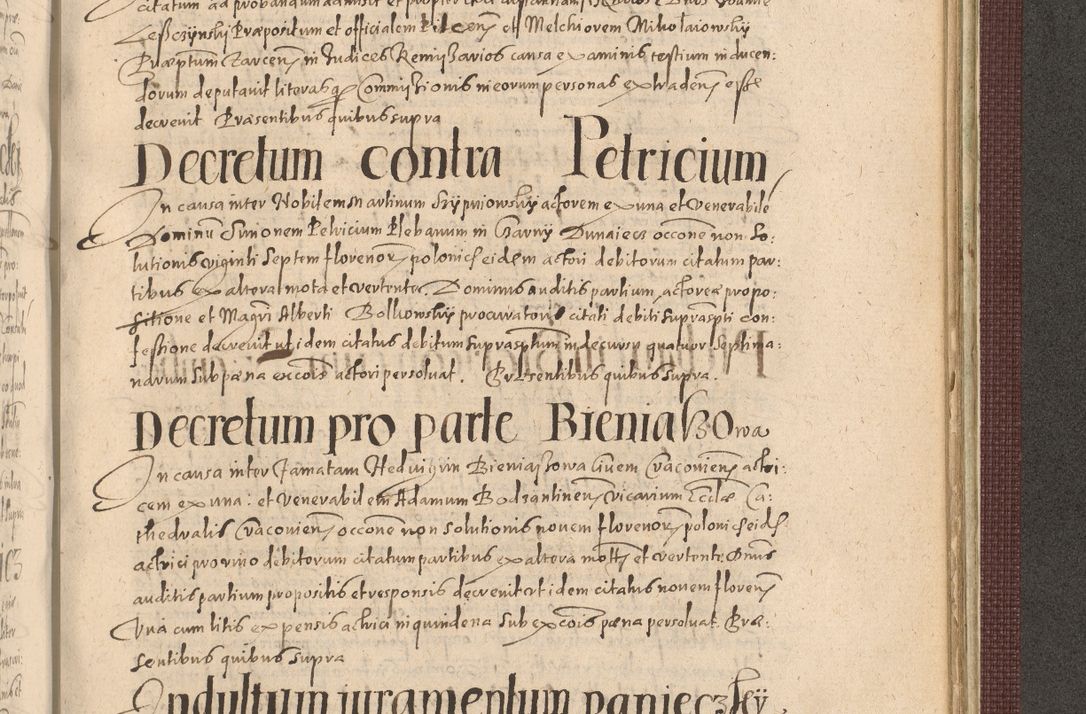 Leszczynskÿ Præpositum et officialem Kilcen̄ et Melchiorem Mikołaiowskÿ
Præptum Tarcen̄ in Iudices Remißarios causa examinis testium inducen:
dorum deputavit literasq̃ Commißionis in eorum personas extraden̄ esse
decrevit Præsentibus quibus supra
Decretum contra Petricium
In causa inter Nobilem Martinum Skÿpniowskÿ actorem ex una et Venerabilē
Dominū Simonem Petricium Plebanum in Czarnÿ Dunaiecz occone non So:
lutionis viginti Septem florenorȝ polonic̄ eidem actori debitorum citatum par:
tibus ex altera mota et vertente. Dominus auditis partium, actoreæ propo:
sitione et Magrī Alberti Bolkowskÿ procuratoris citati debiti supraspti con:
feßione decrevit ut idem citatus debitum supraspt̄um in decursu quatuor Septima:
narum sub pæna exccōis actori persolvat. Præsentibus quibus supra.
Decretum pro parte Bieniaßowa
In causa inter famatam Hedvigim Bieniaßowa Civem Cracovien̄ actri:
cem ex una: et Venerabilem Adamum Bodzantinen̄ vicarium Eccliæ Ca:
thedralis Cracovien̄ occone non Solutionis novem florenorȝ polonic̄ eidē
actrici pro vino debitorum citatum partibus ex altera motā et vertente. Dnūs
auditis partium propositis et responsis decrevit ut idem citatus novem floren̄
Una cum litis expensis actrici in quindena sub excōis pæna persolvat. Præ:
sentibus quibus supra
Indultum iuramentum panieczskÿ.